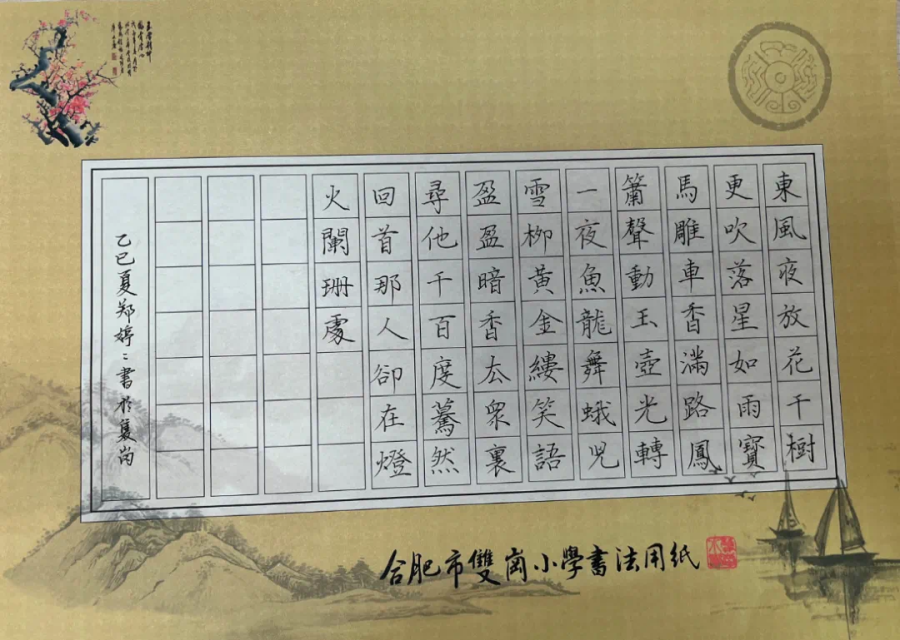 東風夜放花千樹
更吹落星如雨寶
馬雕車香滿路鳳
簫聲動玉壺光轉
一夜魚龍舞蛾兒
雪柳黃金縷笑語
盈盈暗香去衆裏
尋他千百度驀然
回首那人卻在燈
火闌珊處
乙巳夏郑婷〻書於
合肥市雙崗小學書法用紙